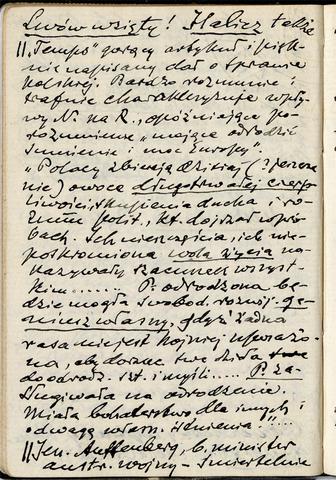 Lwów wzięty! Halicz także
|| "Temps" gorący artykuł i pięk-
nie napisany dał o sprawie
polskiej. Bardzo rozumnie i
trafnie charakteryzuje wpły-
wy N. na R., opóźniające po-
rozumienie "mające odrodzić
sumienie i moc Europy".
"Polacy zbierają dzisiaj (? jeszcze
nie) owoce długotrwałej cierp-
liwości, skupienia ducha i ro-
zumu polit., kt. dojrzał w pró-
bach. Ich nieszczęścia, ich nie-
poskromiona wola życia na-
kazywały szacunek wszyst-
kim...... P. odrodzona bę-
dzie mogła swobod. rozwij. ge-
niusz własny, gdyż żadna
rasa nie jest hojniej uposażo-
na, aby dorzuc. swe dzieła
do odrodz. szt. i myśli..... P. za-
sługiwała na odrodzenie.
Miała bohaterstwo dla innych i
odwagę własn. istnienia!"....
|| Jen. Auffenberg, b. minister
austr. wojny - śmiertelnie